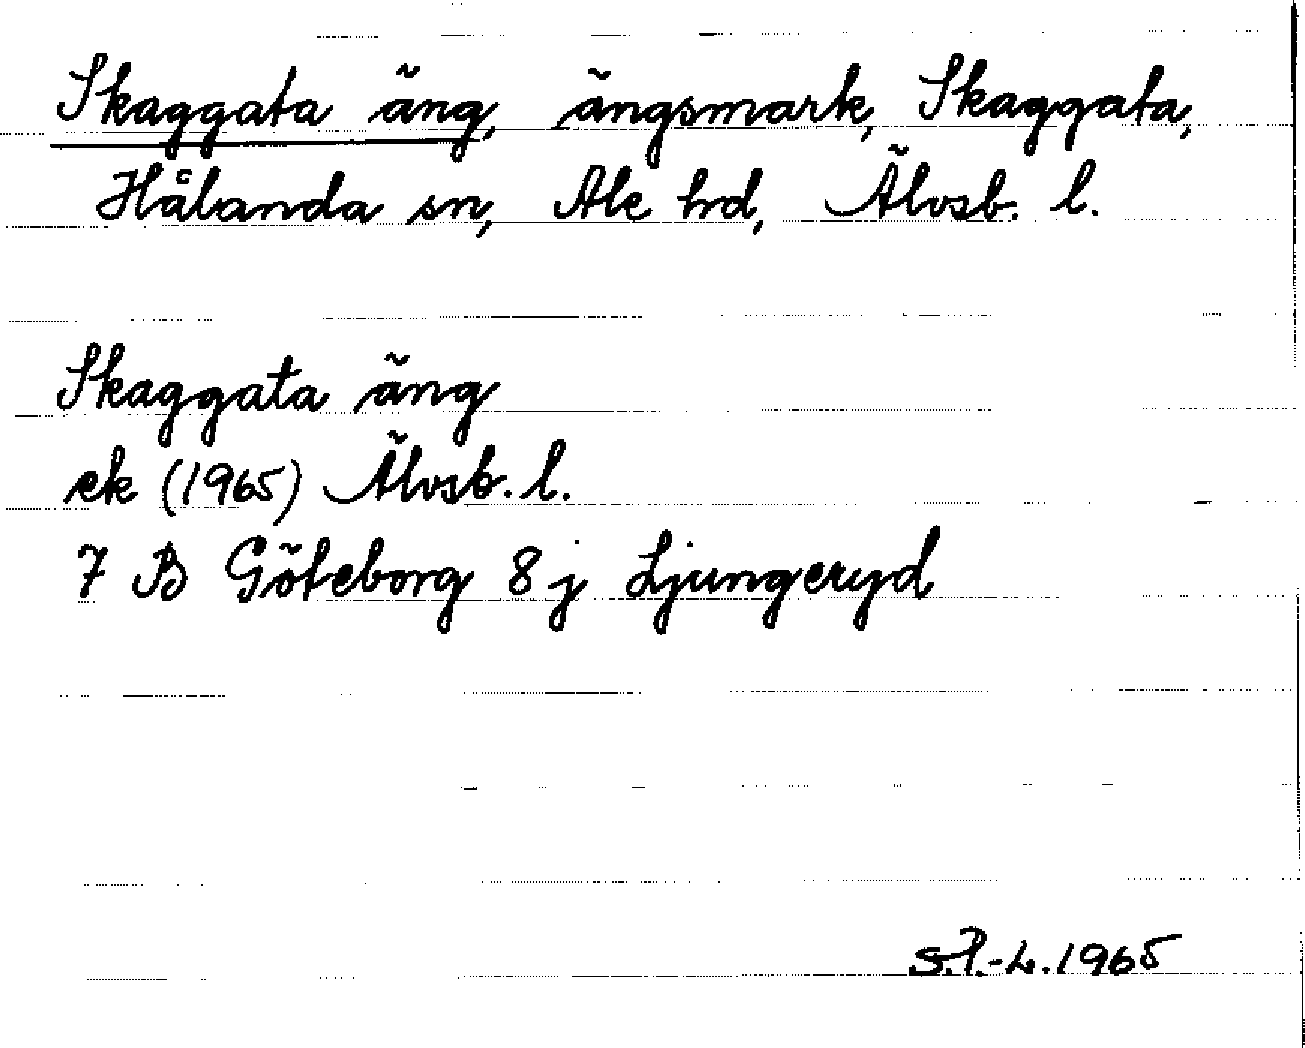 Skaggata äng, ängsmark, Skaggata,
Hålanda sn, Ale hd, Älvsb. l.
Skaggata äng
ek (1965) Älvsb. l.
7 B Göteborg 8 j Ljungeryd
S.P.-L. 1965